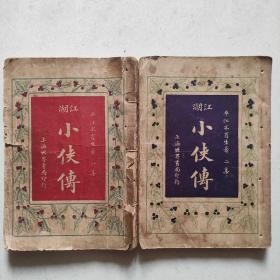 江湖
小俠傳
平江不肖生著 一集
上海世界書局印行
江湖
小俠傳
平江不肖生著 二集
上海世界書局印行